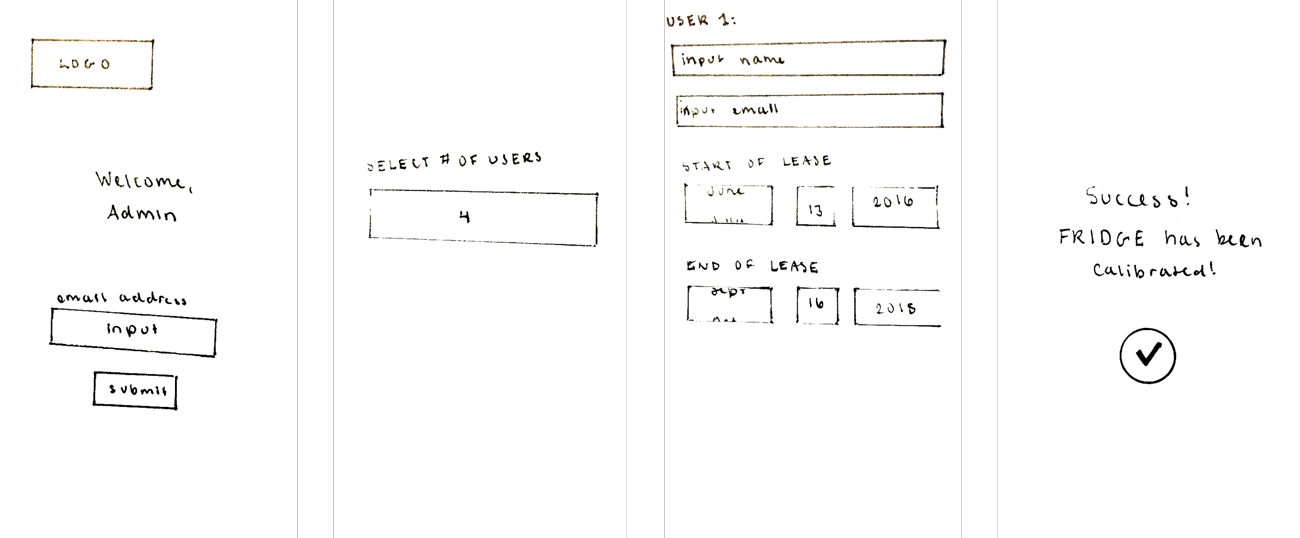 LOGO
Welcome,
Admin
email address
input
submit
SELECT # OF USERS
4
USER 1:
input name
input email
START OF LEASE
June 13 2016
END OF LEASE
Sept 16 2018
Success!
FRIDGE has been
calibrated!